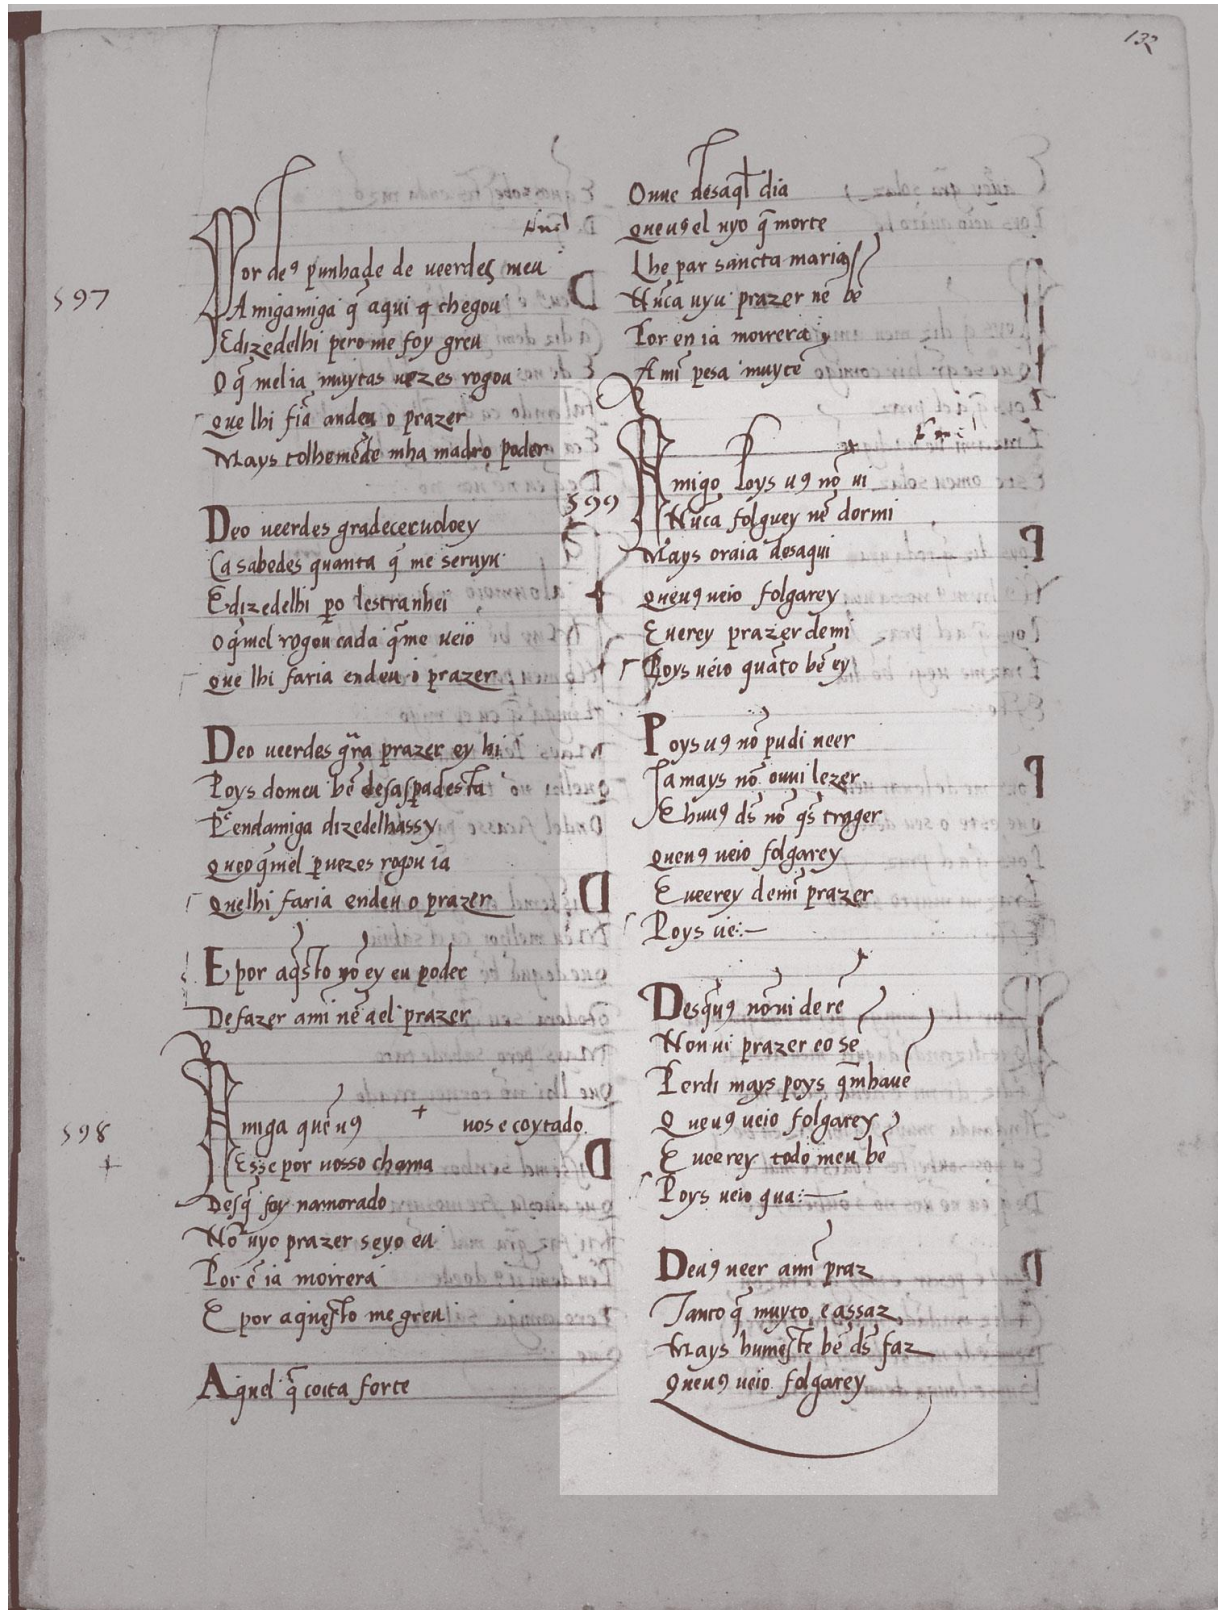 132
597
Por de9 punhade de ueerdes meu
Amigamiga q̃ aqui q chegou
E dizedelhi pero me foy greu
O q̃ mel ia muytas uezes rogou
que lhi fiã andeu o prazer
Mays tolhemēde mha madro poder
Deo ueerdes gradecer
Ca sabedes quanta q̃ me seruyu
E dizedelhi po lestranhei
o q̃mel rogou cada q̃me ueio
que lhi faria endeu o prazer
Deo ueerdes gr̃a prazer ey hi
Poys domeu bē
P̃endamiga dizedelhassy
que o q̃mel puezes rogou ia
quelhi faria endeu o prazer
E por aq̃sto nō ey eu poder
De fazer amī nē ael prazer
598
Amiga quē u9 nos e coytado
E sse por uosso chama
Desq̃ foy namorado
Nō uyo prazer seyo eu
Por ē ia morrera
E por aquesto me greu
Aquel q̃ coita forte
Ouue desaq̃l dia
que u9 el uyo q̃ morte
Lhe par sancta maria
Nūca uyu prazer nē bē
Por en ia morrera
A mī pesa muytē
599
Amigo Poys u9 nō ui
Nūca folguey nē dormi
Mays ora ia desaqui
que u9 ueio folgarey
E uerey prazer demi
Poys ueio quāto bē ey
Poys u9 nō pudi ueer
Iamays nō ouui lezer
E huu9 ds̄ nō q̄s trager
que u9 ueio folgarey
E ueerey demī prazer
Poys ue:—
Desq̃u9 nō ui de rē
Non ui prazer eo sē
Perdi mays poys q̃mhauē
Que u9 ueio folgarey
E ueerey todo meu bē
Poys ueio qua:—
Deu9 ueer amī praz
Tanto q̃ muyto e assaz
Mays humeste bē ds̄ faz
Que u9 ueio folgarey